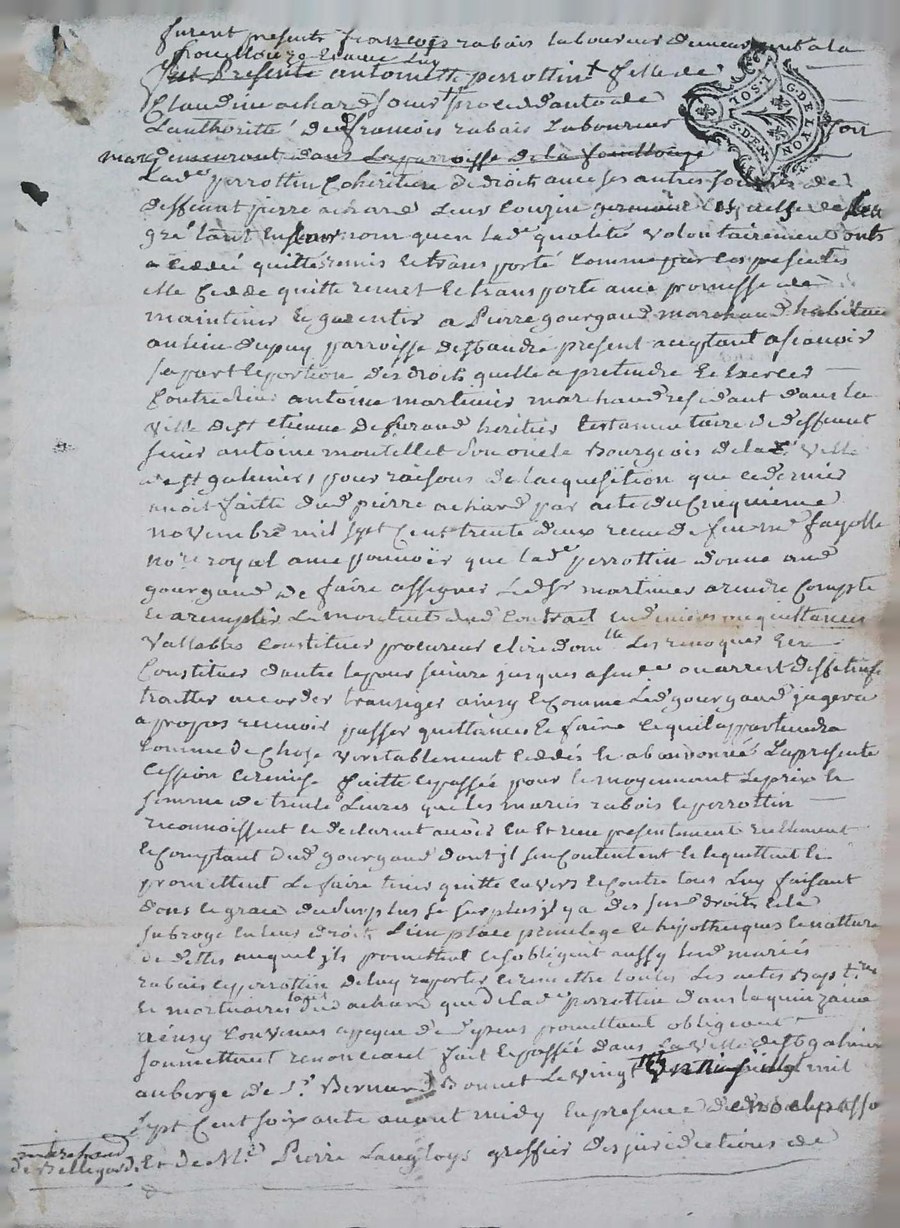 furent presents francois rabais laboureur demeurant a la
fouillouze et avec luy
Presente antoinette perrottin + fille de
Claudine achard sous procedant de
L'authorité dud francois rabais Laboureur son
mary demeurant dans La parroisse de la fouillouze
G. DE LYON
3. DEN.
La de perrottin Coheritiere de droits avec ses autres de
deffunt pierre achard Leur Cousin germain de leur
gré tant en leur nom qu'en lade qualité volontairement onts
a Ceddé quitté remis et transporté Comme par Ces presentes
elle Cedde quitte remet et transporte avec promesse de
maintenir et garentir a Pierre gourgaud marchand habitant
au lieu dupuy parroisse de present acceptant a scavoir
sa part et portion des droits quelle a pretendre et exercer
Contre sieur antoine martinier marchand residant dans la
ville de st etienne de furand heritier testamentaire de deffunt
sieur antoine montellet son oncle Bourgeois de la de ville
de st galmier, pour raisons de lacquisition que ce dernier
avoit faitte dud pierre achard par acte du Cinquieme
novembre mil sept Cent trente deux receu de feu me fayolle
nore royal avec pouvoir que lade perrottin donne aud
gourgaud de faire assigner Led sr martinier a rendre Compte
et a remplir Le montent dud Contrait en deniers ou quittances
vallables Constituer procureur elire domlle Les revoquer et en
Constituer dautre et poursuivre jusques a sentence ou arrest deffinitifs
traitter accorder transiger ainsy et Comme Led gourgaud jugera
a propos recevoir passer quittances et faire Ce quil appartiendra
Comme de Chose veritablement Ceddés et abandonnés La presente
Cession et remise faitte et passée pour et moyennant Le prix et
somme de trente Livres que les mariés rabois et perrottin
reconnoissent et declarent avoir eu et receu presentement reellement
et Comptant dud gourgaud dont jls sen Contentent et le quittent et
promettent Le faire tenir quitte envers et Contre tous Luy faisant
dons et grace du surplus sy surplus jl y a des susd droits et le
subroge en leur droit Lieu place privilege et hypotheques et nature
de dettes auquel jls promettent et sobligent aussy Lesd mariés
rabais et perrottin de luy raporter et remettre toutes Les actes Baptres
et mortuaires dud achard que de Lade perrottin dans la quinzaine
ainsy Convenus a peyne de depens promettant obligeant
soumettant renonceant fait et passée dans La Ville de st galmier
auberge de sr Bernard Bonnet Le vingt juillet mil
sept Cent soixante avant midy En presence de
marchand
de Bellegarde Et de Me Pierre Langloys greffier des juridictions de